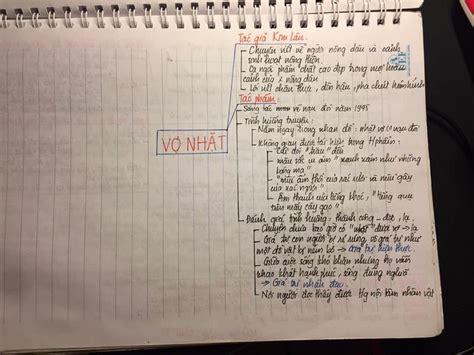 Tác giả Kim Lân:
- Chuyên viết về người nông dân và cảnh
sinh hoạt nông thôn
- Ca ngợi phẩm chất cao đẹp trong mọi hoàn
cảnh của nông dân
- Lối viết chân thực, dân hậu, pha chút hóm hỉnh
Tác phẩm:
- Sáng tác vs nạn đói năm 1945
- Tình huống truyện:
VỢ NHẶT
- Nằm ngay trong nhan đề: nhặt vợ nạn đói
- Không gian được tái hiện trong t/phẩm:
- Cái đói "màu" đến
màu sắc u ám "xanh xám như những
bóng ma"
- "mùi ẩm thối của rác rưởi và mùi gây
của xác người"
- Âm thanh của tiếng khóc, "tiếng quạ
trên mấy cây gạo"
- Đánh giá tình huống: thành công - độc, lạ
- Chuyện chưa bao giờ có "nhặt" được vợ → lạ
- Giá trị con người bị rẻ rúng vô giá trị như
một đồ vật bị ném bỏ → Giá trị hiện thực.
- Giữa cuộc sống khó khăn nhưng họ vẫn
khao khát hạnh phúc, sống đúng nghĩa
→ Giá trị nhân đạo.
- Nơi người đọc thấy được t/g nội tâm nhân vật